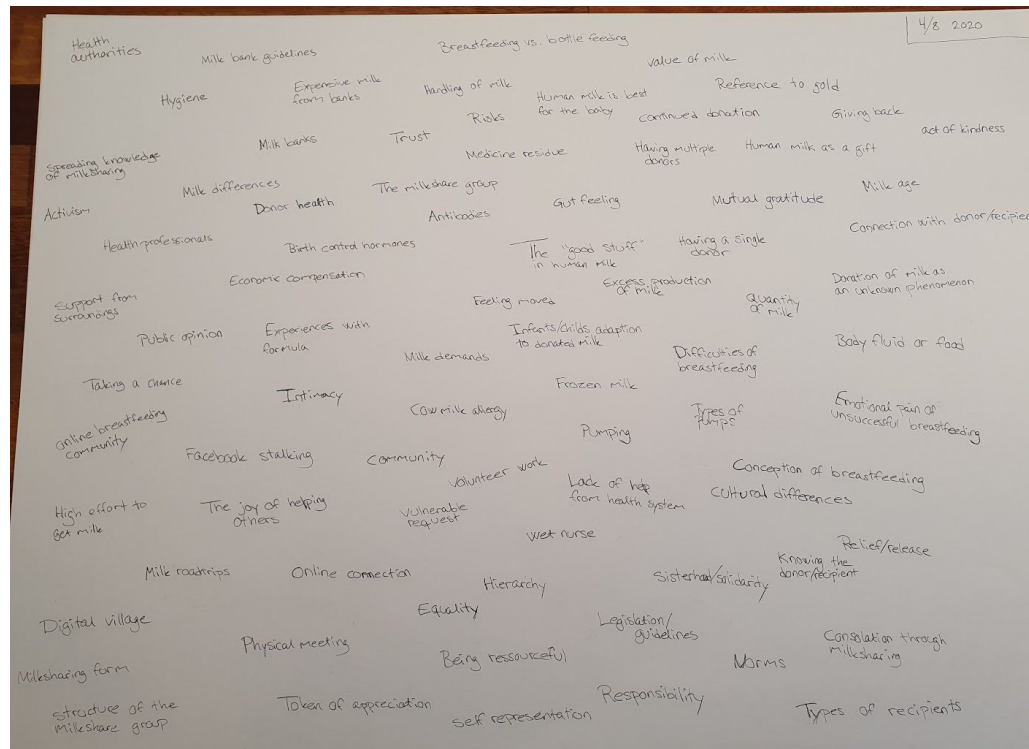 4/8 2020
Health
authorities
Milk bank guidelines
Breastfeeding vs. bottle feeding
value of milk
Hygiene
Expensive milk
from banks
Handling of milk
Human milk is best
for the baby
Reference to gold
Risks
continued donation
Giving back
act of kindness
Spreading knowledge
of milksharing
Milk banks
Trust
Medicine residue
Having multiple
donors
Human milk as a gift
Activism
Milk differences
Donor health
The milkshare group
Antibodies
Gut feeling
Mutual gratitude
Milk age
Connection with donor/recipien
Health professionals
Birth control hormones
The "good stuff"
in human milk
Having a single
donor
Economic compensation
Support from
surroundings
Feeling moved
Excess production
of milk
Quantity
of milk
Donation of milk as
an unknown phenomenon
Public opinion
Experiences with
formula
Milk demands
Infants/childs adaption
to donated milk
Difficulties of
breastfeeding
Body fluid or food
Taking a chance
Intimacy
Cow milk allergy
Frozen milk
Types of
pumps
Emotional pain of
unsuccessful breastfeeding
online breastfeeding
community
Facebook stalking
Community
Pumping
Volunteer work
Lack of help
from health system
Conception of breastfeeding
Cultural differences
High effort to
get milk
The joy of helping
others
Vulnerable
request
wet nurse
Relief/release
Milk roadtrips
Online connection
Hierarchy
Sisterhood/solidarity
Knowing the
donor/recipient
Digital village
Equality
Legislation/
guidelines
Physical meeting
Being ressourceful
Norms
Consolation through
milksharing
Milksharing form
structure of the
milkshare group
Token of appreciation
self representation
Responsibility
Types of recipients